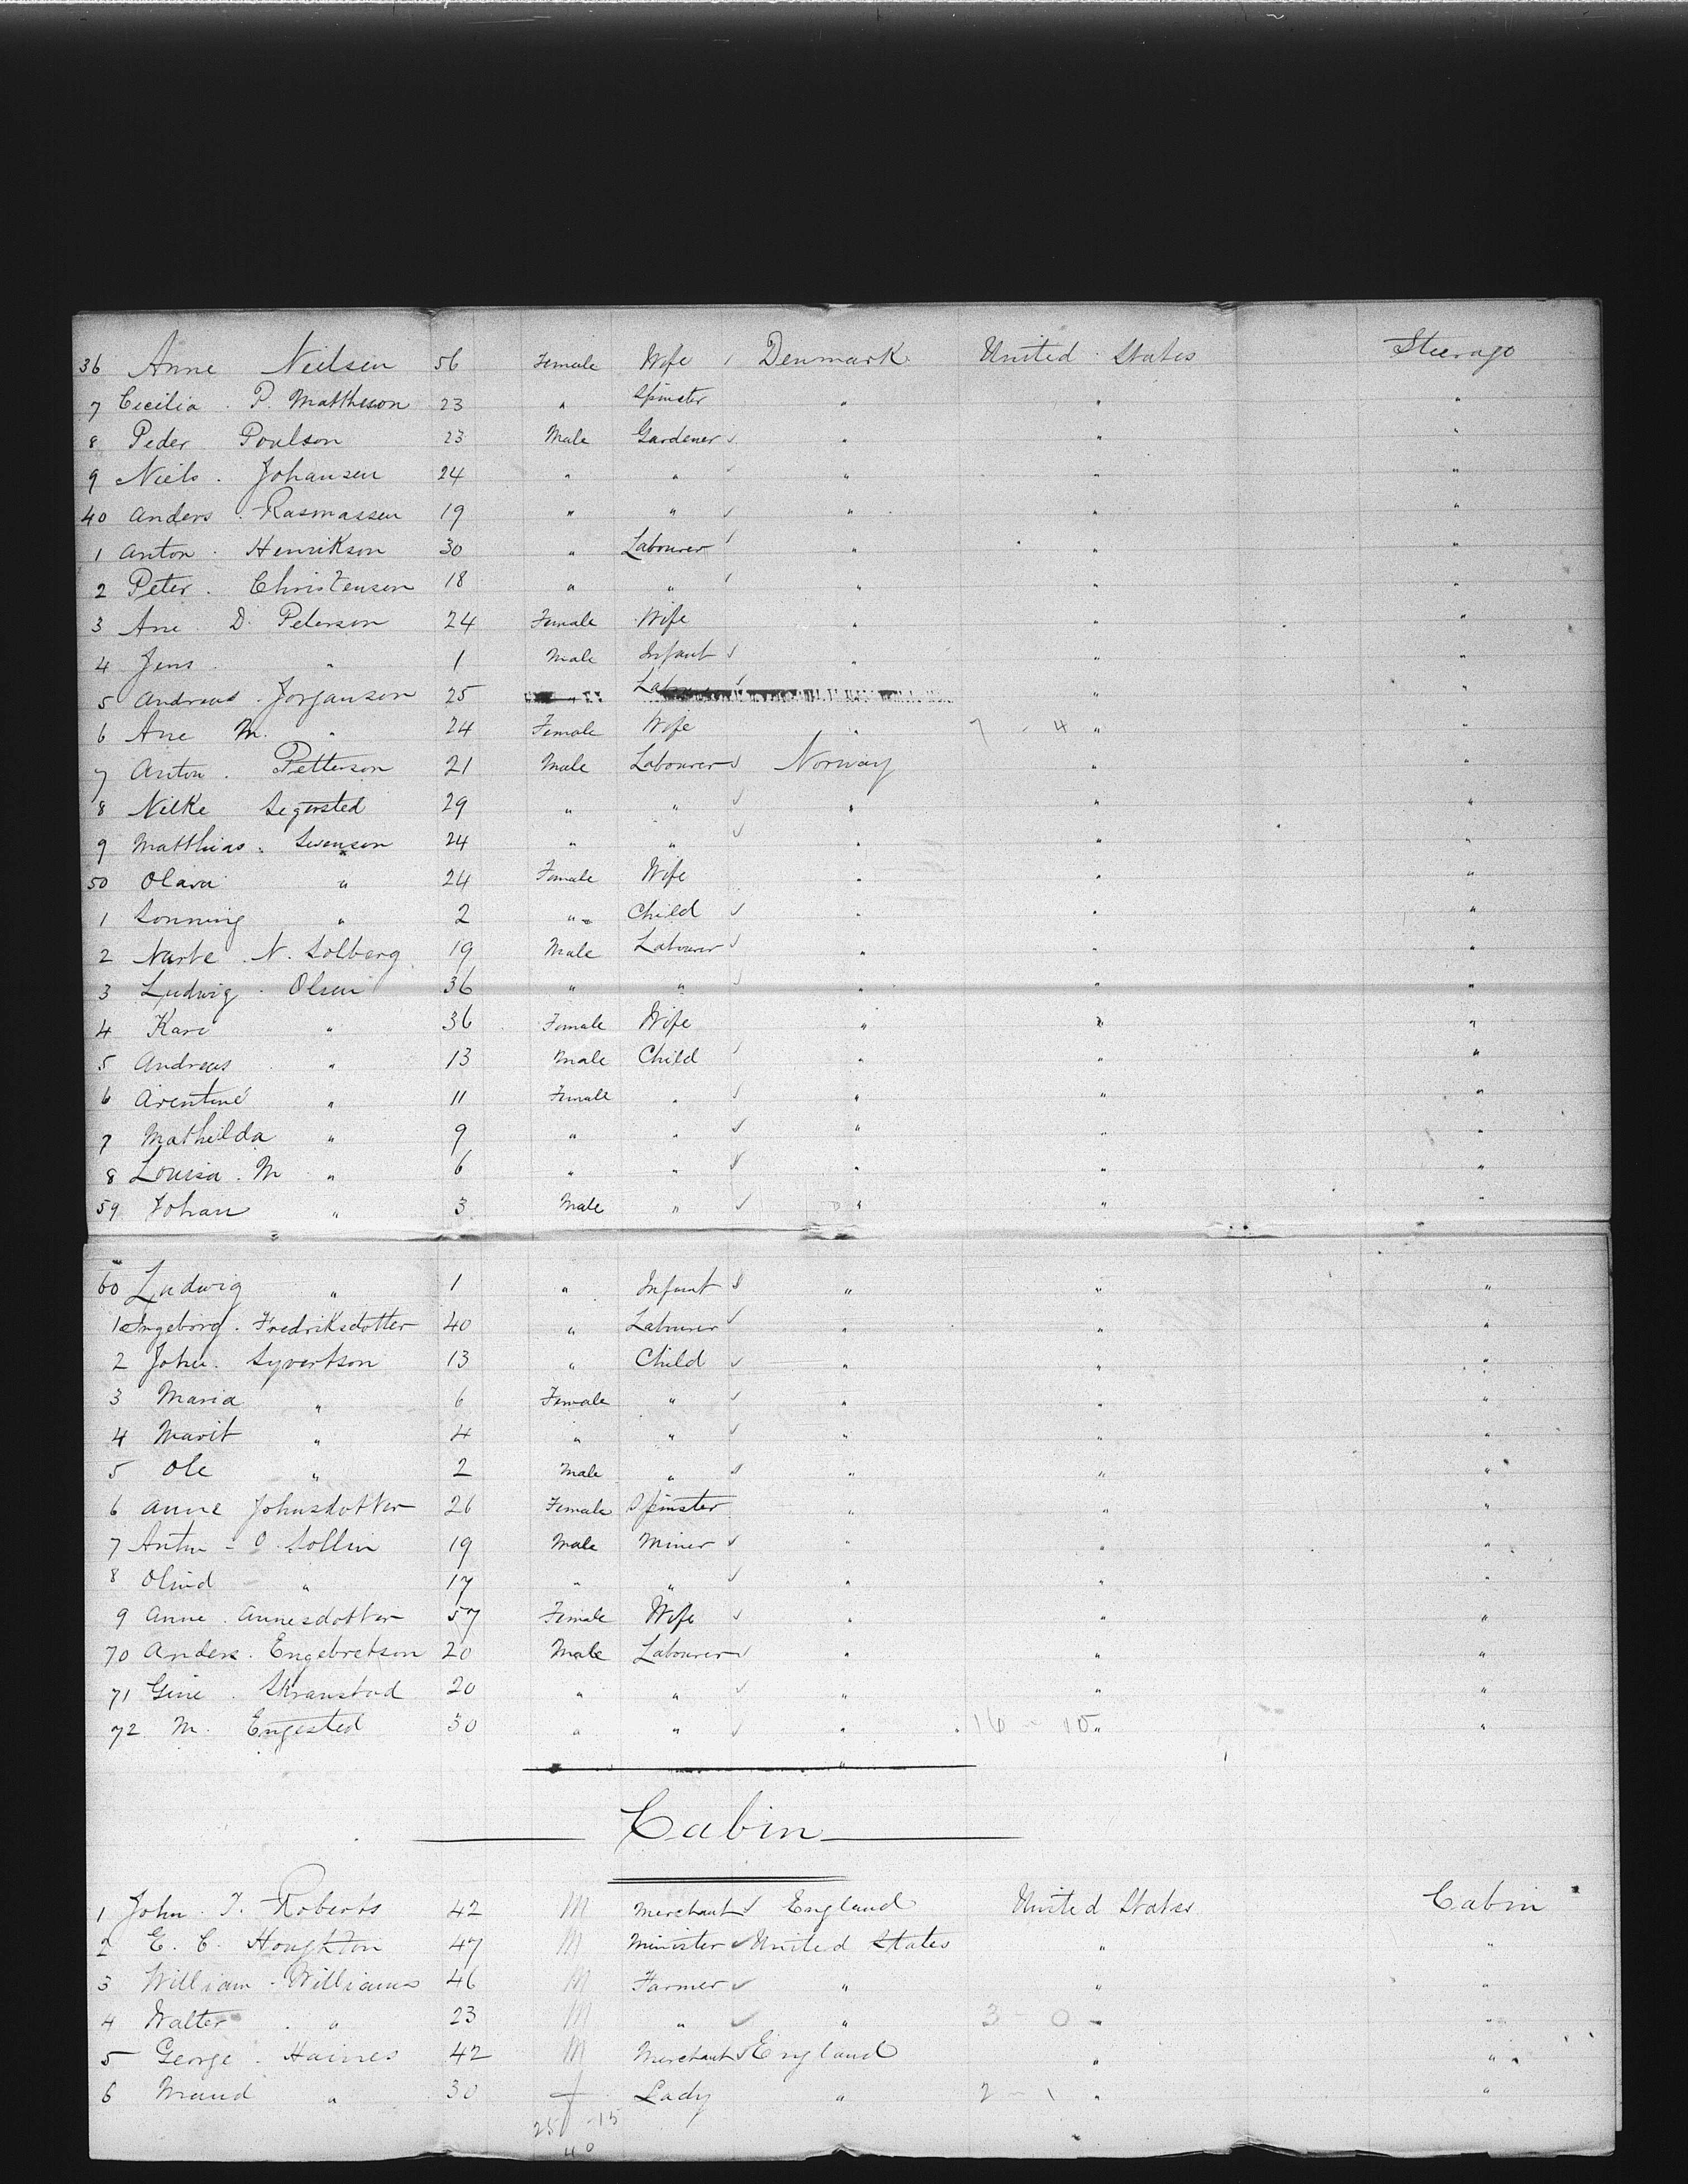 36 Anne Nielsen 56 Female Wife Denmark United States Steerage
7 Cecilia P. Mattheson 23 " Spinster " " "
8 Peder Poulson 23 Male Gardener " " "
9 Niels Johansen 24 " " " " "
40 Anders Rasmassen 19 " " " " "
1 Anton Henrikson 30 " Labourer " " "
2 Peter Christenson 18 " " " " "
3 Ane D. Peterson 24 Female Wife " " "
4 Jens " 1 Male Infant " " "
5 Andreas Jorganson 25 " "
6 Ane M. " 24 Female Wife " 7 - 4 " "
7 Anton Petterson 21 Male Labourer Norway " "
8 Nilke Segersted 29 " " " " "
9 Matthias Swenson 24 " " " " "
50 Olava " 24 Female Wife " " "
1 Sonning " 2 " Child " " "
2 N. Solberg 19 Male Labourer " " "
3 Ludwig Olsen 36 " " " " "
4 Kari " 36 Female Wife " " "
5 Andreas " 13 Male Child " " "
6 Arentine " 11 Female " " " "
7 Mathilda " 9 " " " " "
8 Louisa M " 6 " " " " "
59 Johan " 3 Male " " " "
60 Ludwig " 1 " Infant " " "
1 Ingeborg Fredriksdotter 40 " Labourer " " "
2 John Syvertson 13 " Child " " "
3 Maria " 6 Female " " " "
4 Marit " 4 " " " " "
5 Ole " 2 Male " " " "
6 Anne Johnsdotter 26 Female Spinster " " "
7 Anton O Sollin 19 Male Miner " " "
8 " 17 " " " " "
9 Anne Annesdotter 57 Female Wife " " "
70 Anders Engebretson 20 Male Labourer " " "
71 Gine Skranstad 20 " " " " "
72 M. Engested 30 " " " 16 - 10 " "
Cabin
1 John T. Roberts 42 M Merchant England United States Cabin
2 E. C. Houghton 47 M Minister United States " "
3 William Williams 46 M Farmer " " "
4 Walter " 23 M " " 3 - 0 " "
5 George Haines 42 M Merchant England " "
6 Maud " 30 f Lady " 2 - 1 " "
25 - 15
40